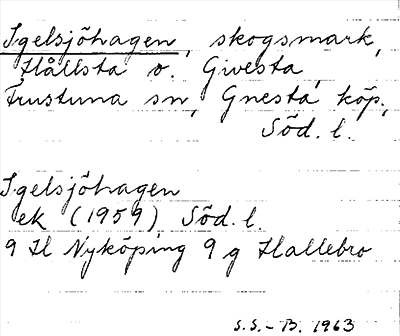 Igelsjöhagen, skogsmark,
Hållsta o. Givesta,
Frustuna sn, Gnesta köp.,
Söd. l.
Igelsjöhagen
ek (1959) Söd. l.
9 H Nyköping 9 g Hallebro
S.S.-B. 1963